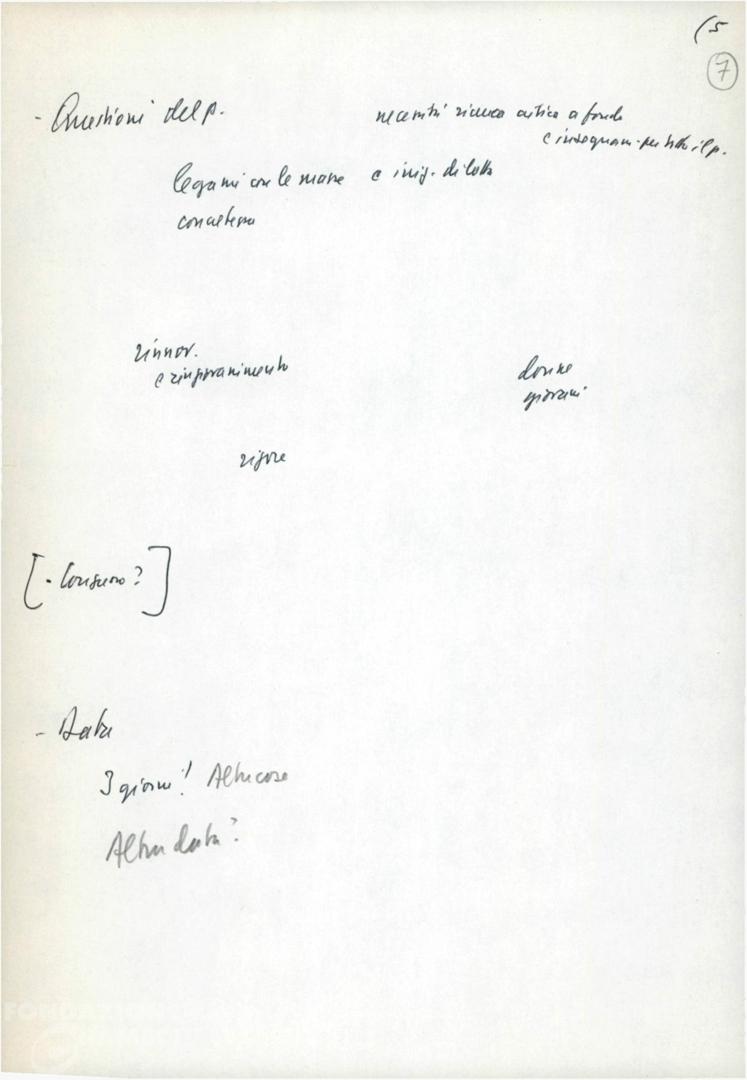 (5
7
- Questioni del p.
necessità ricerca critica a fondo
e insegnam. per tutto il p.
legami con le masse e iniz. di lotta
concretezza
rinnov.
e ringiovanimento
donne
giovani
rigore
[. Congresso?]
- Data
3 giorni! Altre cose
Altra data?
FONDAZION